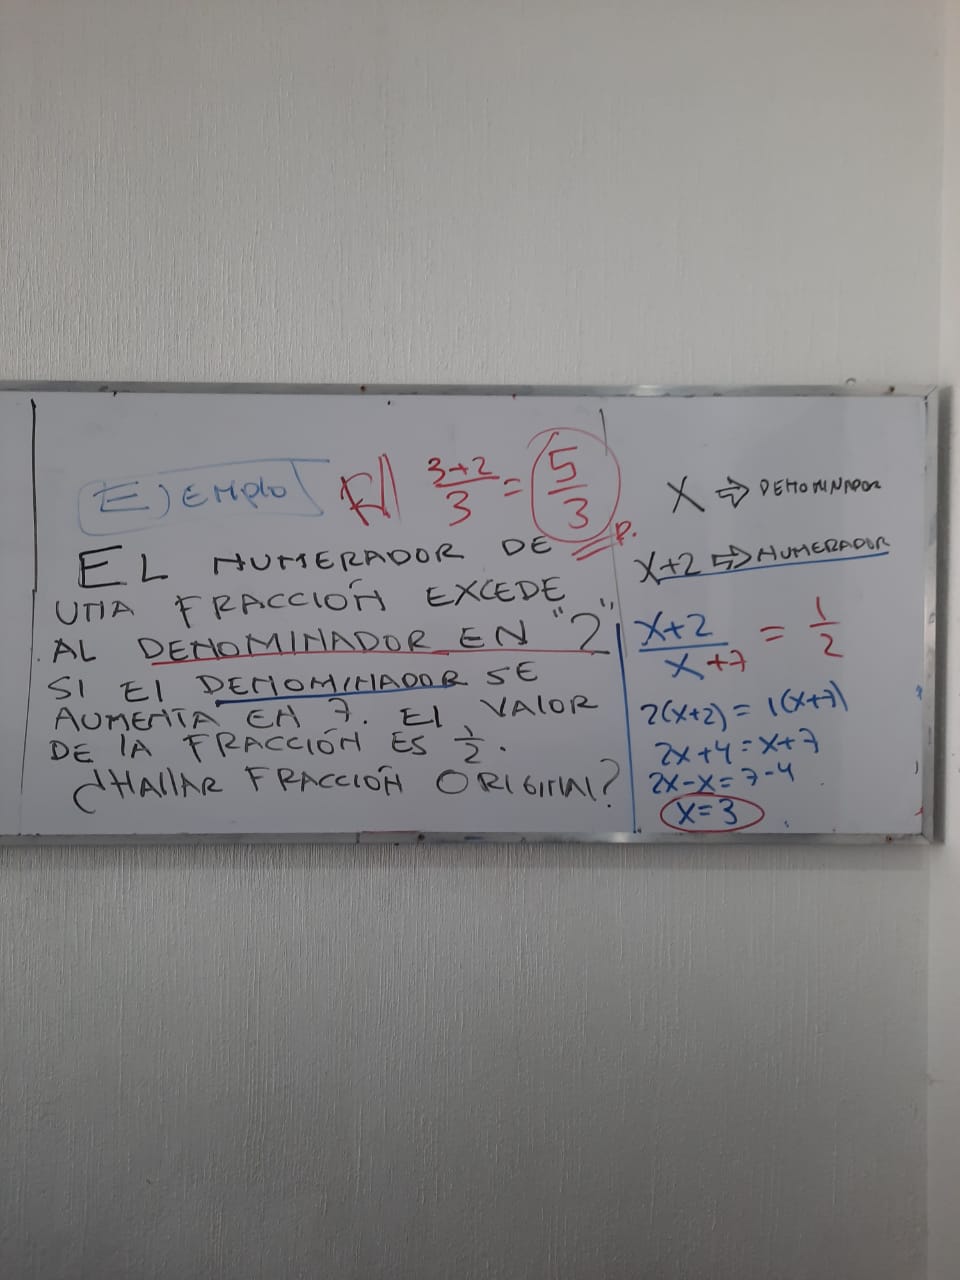 Ejemplo
R// 3+2/3 = 5/3
R.
EL NUMERADOR DE
UNA FRACCIÓN EXCEDE
AL DENOMINADOR EN "2",
SI El DENOMINADOR SE
AUMENTA EN 7. El VALOR
DE lA FRACCIÓN ES 1/2.
¿HAllAR FRACCIÓN ORIGINAl?
X ⇒ DENOMINADOR
X+2 ⇒ NUMERADOR
X+2/X+7 = 1/2
2(X+2) = 1(X+7)
2X+4 = X+7
2X-X = 7-4
X=3